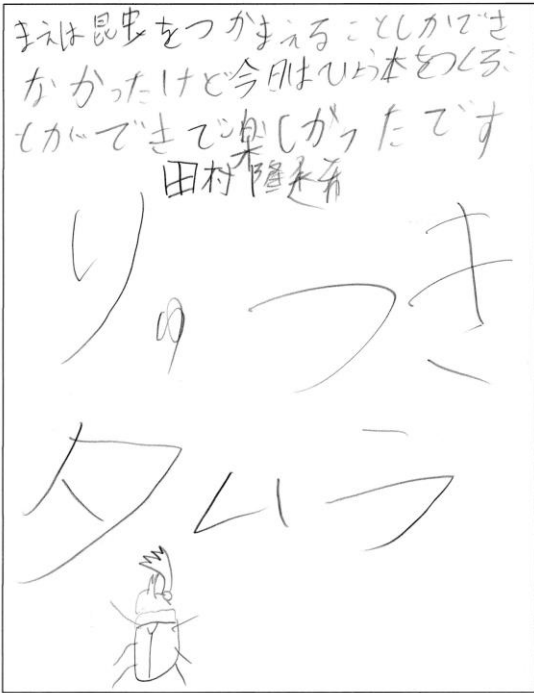 まえは昆虫をつかまえることしかでき
なかったけど今日はひょう本をつくるこ
とができて楽しかったです
田村隆
りゅつき
タムラ